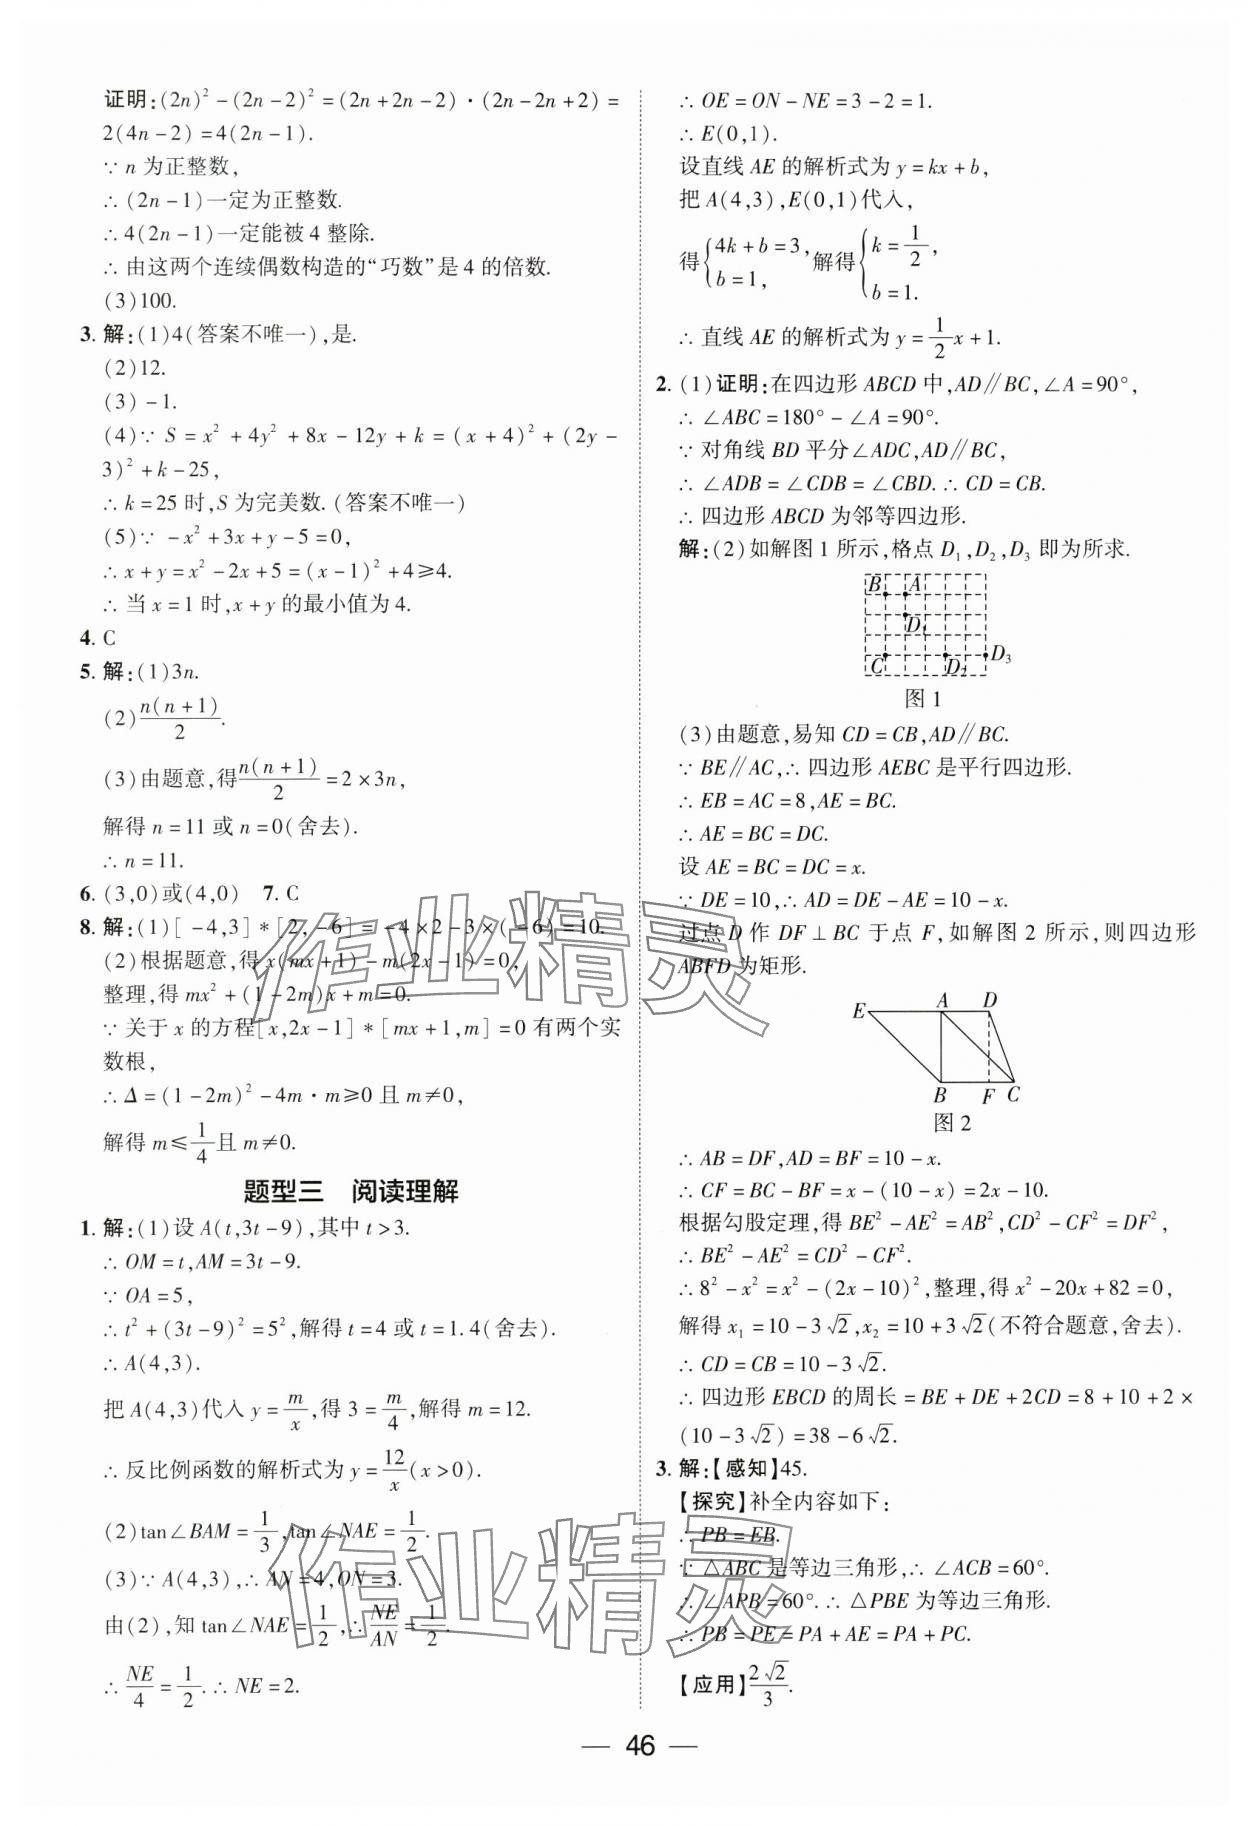 证明:(2n)²-(2n-2)²=(2n+2n-2)·(2n-2n+2)=
2(4n-2)=4(2n-1).
∵ n 为正整数,
∴ (2n-1)一定为正整数.
∴ 4(2n-1)一定能被 4 整除.
∴ 由这两个连续偶数构造的“巧数”是 4 的倍数.
(3)100.
3. 解:(1)4(答案不唯一),是.
(2)12.
(3)-1.
(4)∵ S=x²+4y²+8x-12y+k=(x+4)²+(2y-
3)²+k-25,
∴ k=25 时,S 为完美数.(答案不唯一)
(5)∵ -x²+3x+y-5=0,
∴ x+y=x²-2x+5=(x-1)²+4≥4.
∴ 当 x=1 时,x+y 的最小值为 4.
4. C
5. 解:(1)3n.
(2)n(n+1)/2.
(3)由题意,得n(n+1)/2=2×3n,
解得 n=11 或 n=0(舍去).
∴ n=11.
6. (3,0)或(4,0) 7. C
8. 解:(1)[-4,3]*[2,-6]=-4×2-3×(-6)=10.
(2)根据题意,得 x(mx+1)-m(2x-1)=0,
整理,得 mx²+(1-2m)x+m=0.
∵ 关于 x 的方程[x,2x-1]*[mx+1,m]=0 有两个实
数根,
∴ Δ=(1-2m)²-4m·m≥0 且 m≠0,
解得 m≤1/4且 m≠0.
题型三 阅读理解
1. 解:(1)设 A(t,3t-9),其中 t>3.
∴ OM=t,AM=3t-9.
∵ OA=5,
∴ t²+(3t-9)²=5²,解得 t=4 或 t=1.4(舍去).
∴ A(4,3).
把 A(4,3)代入 y=m/x,得 3=m/4,解得 m=12.
∴ 反比例函数的解析式为 y=12/x(x>0).
(2)tan∠BAM=1/3,tan∠NAE=1/2.
(3)∵ A(4,3),∴ AN=4,ON=3.
由(2),知 tan∠NAE=1/2,∴ NE/AN=1/2.
∴ NE/4=1/2.∴ NE=2.
∴ OE=ON-NE=3-2=1.
∴ E(0,1).
设直线 AE 的解析式为 y=kx+b,
把 A(4,3),E(0,1)代入,
得{4k+b=3, b=1, 解得{k=1/2, b=1.
∴ 直线 AE 的解析式为 y=1/2x+1.
2. (1)证明:在四边形 ABCD 中,AD∥BC,∠A=90°,
∴ ∠ABC=180°-∠A=90°.
∵ 对角线 BD 平分∠ADC,AD∥BC,
∴ ∠ADB=∠CDB=∠CBD.∴ CD=CB.
∴ 四边形 ABCD 为邻等四边形.
解:(2)如解图 1 所示,格点 D₁,D₂,D₃ 即为所求.
B A
D₁
C D₂ D₃
图 1
(3)由题意,易知 CD=CB,AD∥BC.
∵ BE∥AC,∴ 四边形 AEBC 是平行四边形.
∴ EB=AC=8,AE=BC.
∴ AE=BC=DC.
设 AE=BC=DC=x.
∵ DE=10,∴ AD=DE-AE=10-x.
过点 D 作 DF⊥BC 于点 F,如解图 2 所示,则四边形
ABFD 为矩形.
E A D
B F C
图 2
∴ AB=DF,AD=BF=10-x.
∴ CF=BC-BF=x-(10-x)=2x-10.
根据勾股定理,得 BE²-AE²=AB²,CD²-CF²=DF²,
∴ BE²-AE²=CD²-CF².
∴ 8²-x²=x²-(2x-10)²,整理,得 x²-20x+82=0,
解得 x₁=10-3√2,x₂=10+3√2(不符合题意,舍去).
∴ CD=CB=10-3√2.
∴ 四边形 EBCD 的周长=BE+DE+2CD=8+10+2×
(10-3√2)=38-6√2.
3. 解:【感知】45.
【探究】补全内容如下:
∴ PB=EB.
∵ △ABC 是等边三角形,∴ ∠ACB=60°.
∴ ∠APB=60°.∴ △PBE 为等边三角形.
∴ PB=PE=PA+AE=PA+PC.
【应用】2√2/3.
— 46 —
作业精灵
作业精灵